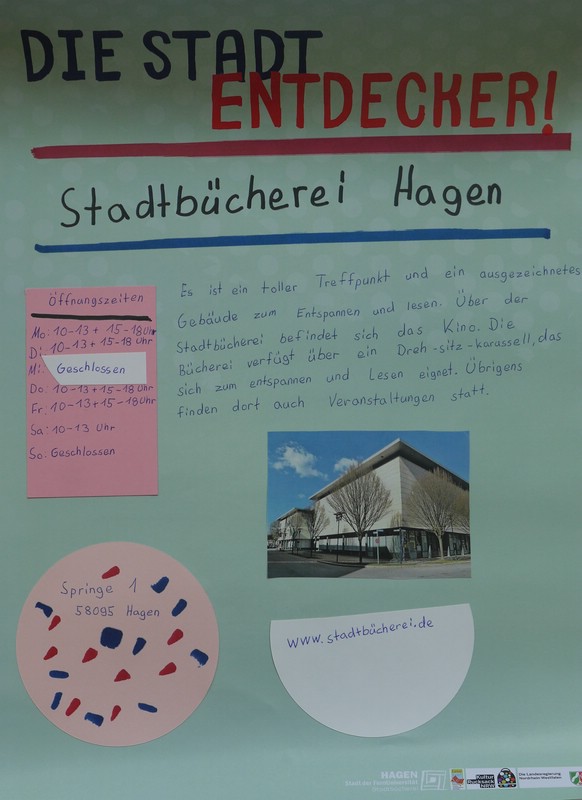 DIE STADT
ENTDECKER!
Stadtbücherei Hagen
Öffnungszeiten
Mo: 10-13 + 15-18 Uhr
Di: 10-13 + 15-18 Uhr
Mi: Geschlossen
Do: 10-13+15-18 Uhr
Fr: 10-13+15-18Uhr
Sa: 10-13 Uhr
So: Geschlossen
Es ist ein toller Treffpunkt und ein ausgezeichnetes
Gebäude zum Entspannen und lesen. Über der
Stadtbücherei befindet sich das Kino. Die
Bücherei verfügt über ein Dreh-sitz-karussell, das
sich zum entspannen und Lesen eignet. Übrigens
finden dort auch Veranstaltungen statt.
Springe 1
58095 Hagen
www.stadtbücherei.de
HAGEN
Stadt der FernUniversität
Stadtbücherei
Kultur
Rucksack
NRW
Die Landesregierung
Nordrhein-Westfalen